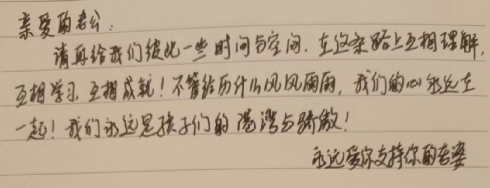 亲爱的老公:
请再给我们彼此一些时间与空间.在这条路上互相理解,
互相学习互相成就!不管经历什么风风雨雨,我们的心永远在
一起!我们永远是孩子们的港湾与骄傲!
永远爱你支持你的老婆